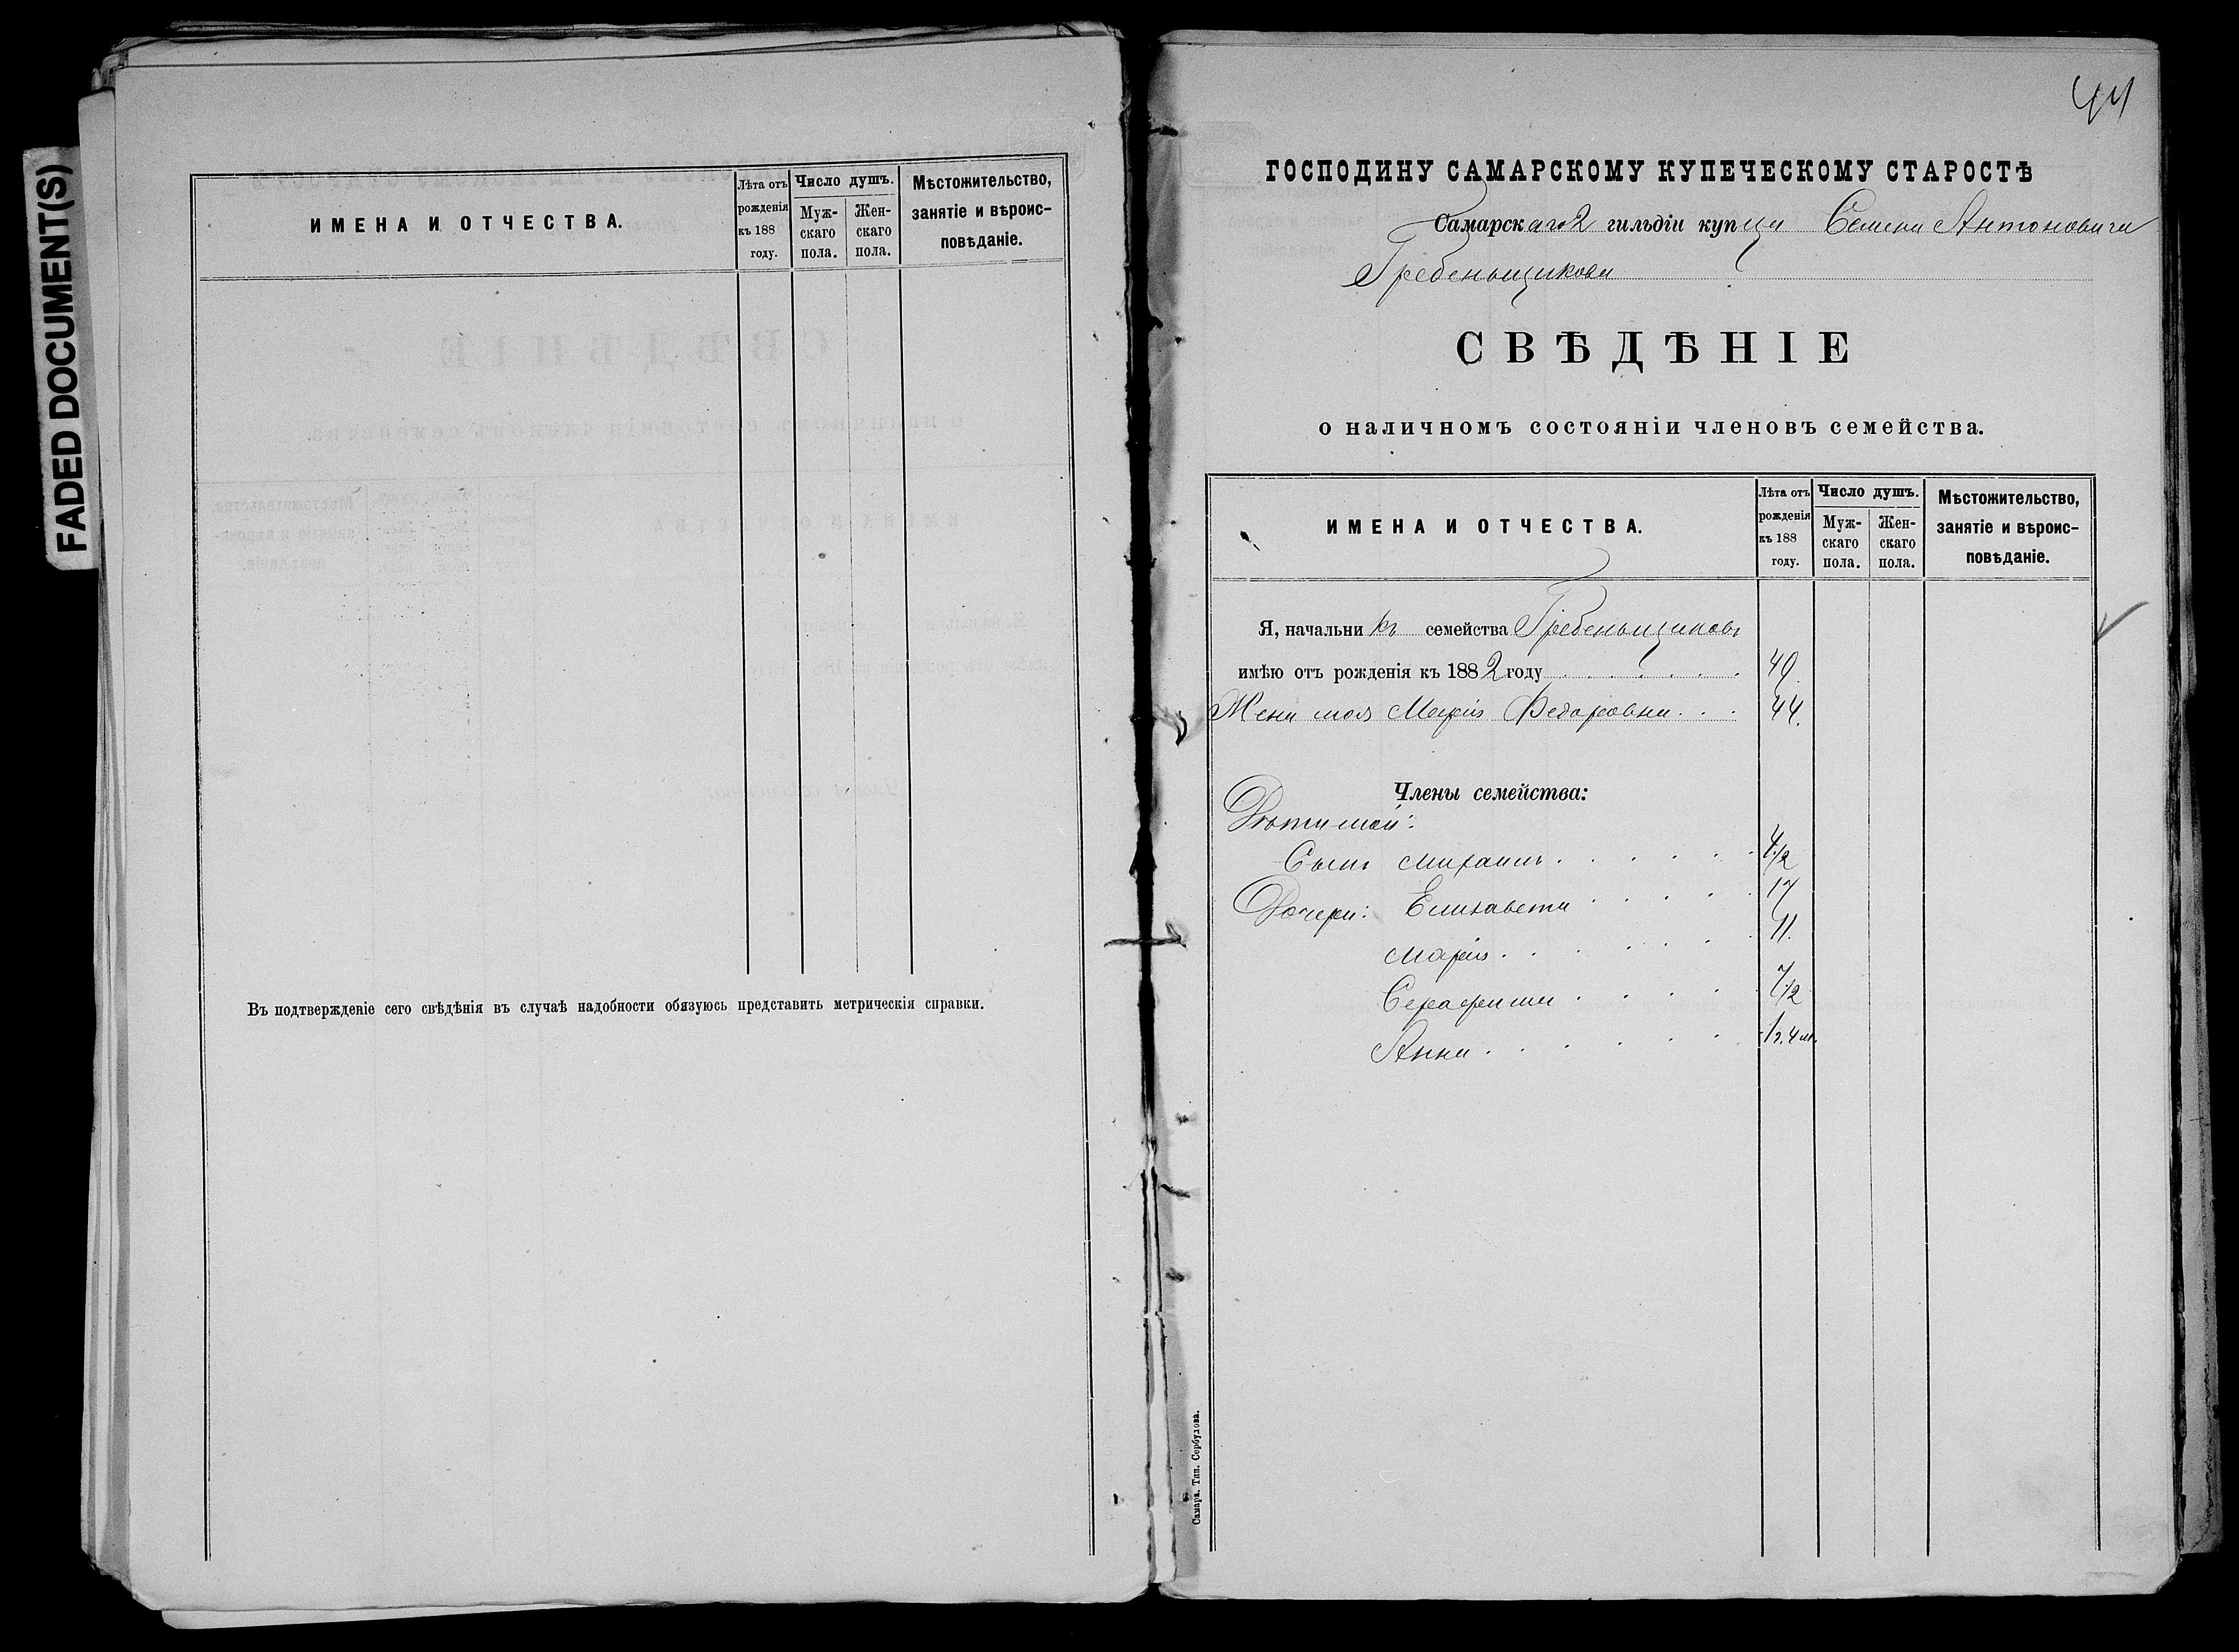 FADED DOCUMENT(S)
ИМЕНА И ОТЧЕСТВА.
Лѣта отъ рожденія къ 188 году.
Число душъ.
Муж-скаго пола.
Жен-скаго пола.
Мѣстожительство, занятіе и вѣроис-повѣданіе.
Въ подтвержденіе сего свѣдѣнія въ случаѣ надобности обязуюсь представить метрическія справки.
44
ГОСПОДИНУ САМАРСКОМУ КУПЕЧЕСКОМУ СТАРОСТѢ
Самарскаго 2 гильдіи купца Семена Антоновича
Гребеньщикова
СВѢДѢНІЕ
о наличномъ состояніи членовъ семейства.
ИМЕНА И ОТЧЕСТВА.
Лѣта отъ рожденія къ 188 году.
Число душъ.
Муж-скаго пола.
Жен-скаго пола.
Мѣстожительство, занятіе и вѣроис-повѣданіе.
Я, начальникъ семейства Гребеньщиковъ
имѣю отъ рожденія къ 1882 году 49.
Жена моя Марія Федоровна 44.
Члены семейства:
Дѣти мои:
Сынъ Михаилъ 4 1/2
Дочери: Елизавета 17
Марія 11.
Серафима 7 1/2
Анна
Самара. Тип. Сербулова.